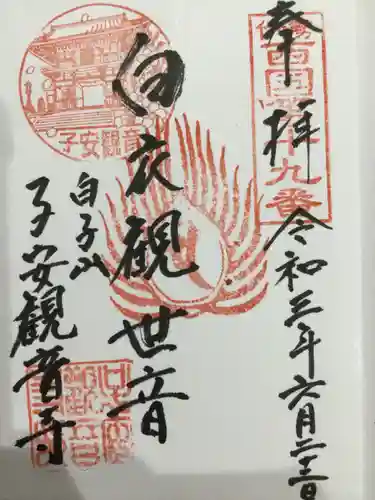 奉拝
令和三年六月二十三日
白衣観世音
白子山
子安観音寺
子安観音